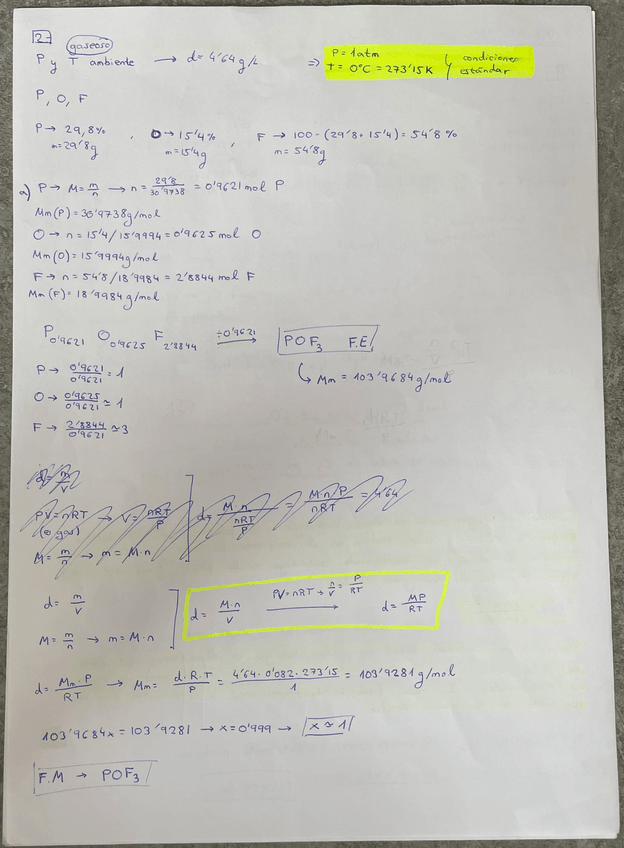 2-
gaseoso
P y T ambiente → d = 4'64 g/L ⇒ P = 1 atm
T = 0°C = 273'15K } condiciones estándar
P, O, F
P → 29,8% , O → 15'4% , F → 100 - (29'8 + 15'4) = 54'8 %
m = 29'8g m = 15'4g m = 54'8g
a) P → M = m/n → n = 29'8/30'9738 = 0'9621 mol P
Mm(P) = 30'9738g/mol
O → n = 15'4/15'9994 = 0'9625 mol O
Mm(O) = 15'9994g/mol
F → n = 54'8/18'9984 = 2'8844 mol F
Mm(F) = 18'9984 g/mol
P0'9621 O0'9625 F2'8844 ÷0'9621 → POF3 F.E.
P → 0'9621/0'9621 = 1 ↳ Mm = 103'9684g/mol
O → 0'9625/0'9621 ≃ 1
F → 2'8844/0'9621 ≃ 3
d = m/V
PV = nRT → V = nRT/P d = M·n/(nRT/P) = M·n·P/nRT = 4'64
gas)
M = m/n → m = M·n
d = m/V d = M·n/V PV = nRT → n/V = P/RT → d = MP/RT
M = m/n → m = M·n
d = Mm·P/RT → Mm = d·R·T/P = 4'64·0'082·273'15/1 = 103'9281 g/mol
103'9684x = 103'9281 → x = 0'999 → x ≃ 1
F.M → POF3